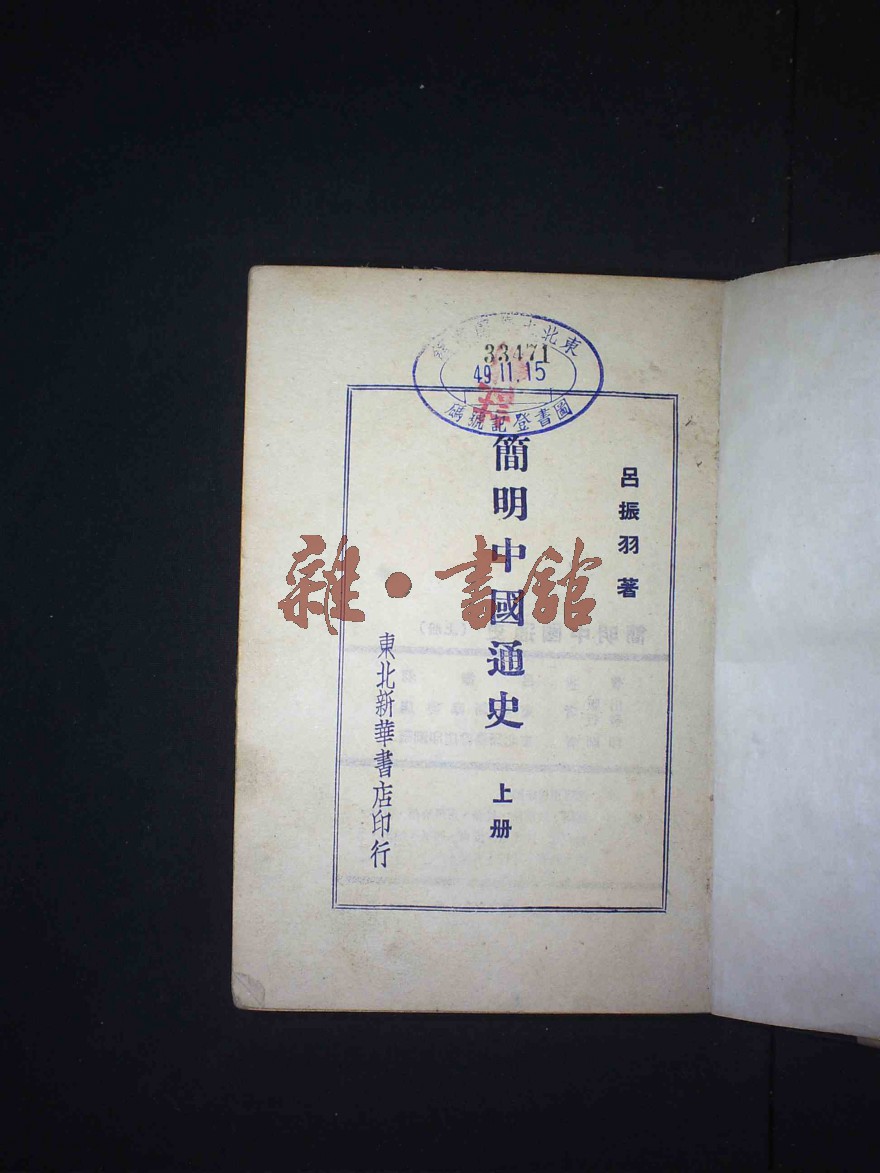 東北
33471
49 11. 15
圖書登記號碼
呂振羽 著
簡明中國通史 上册
東北新華書店印行
雜·書館
簡明中國通史（上册）